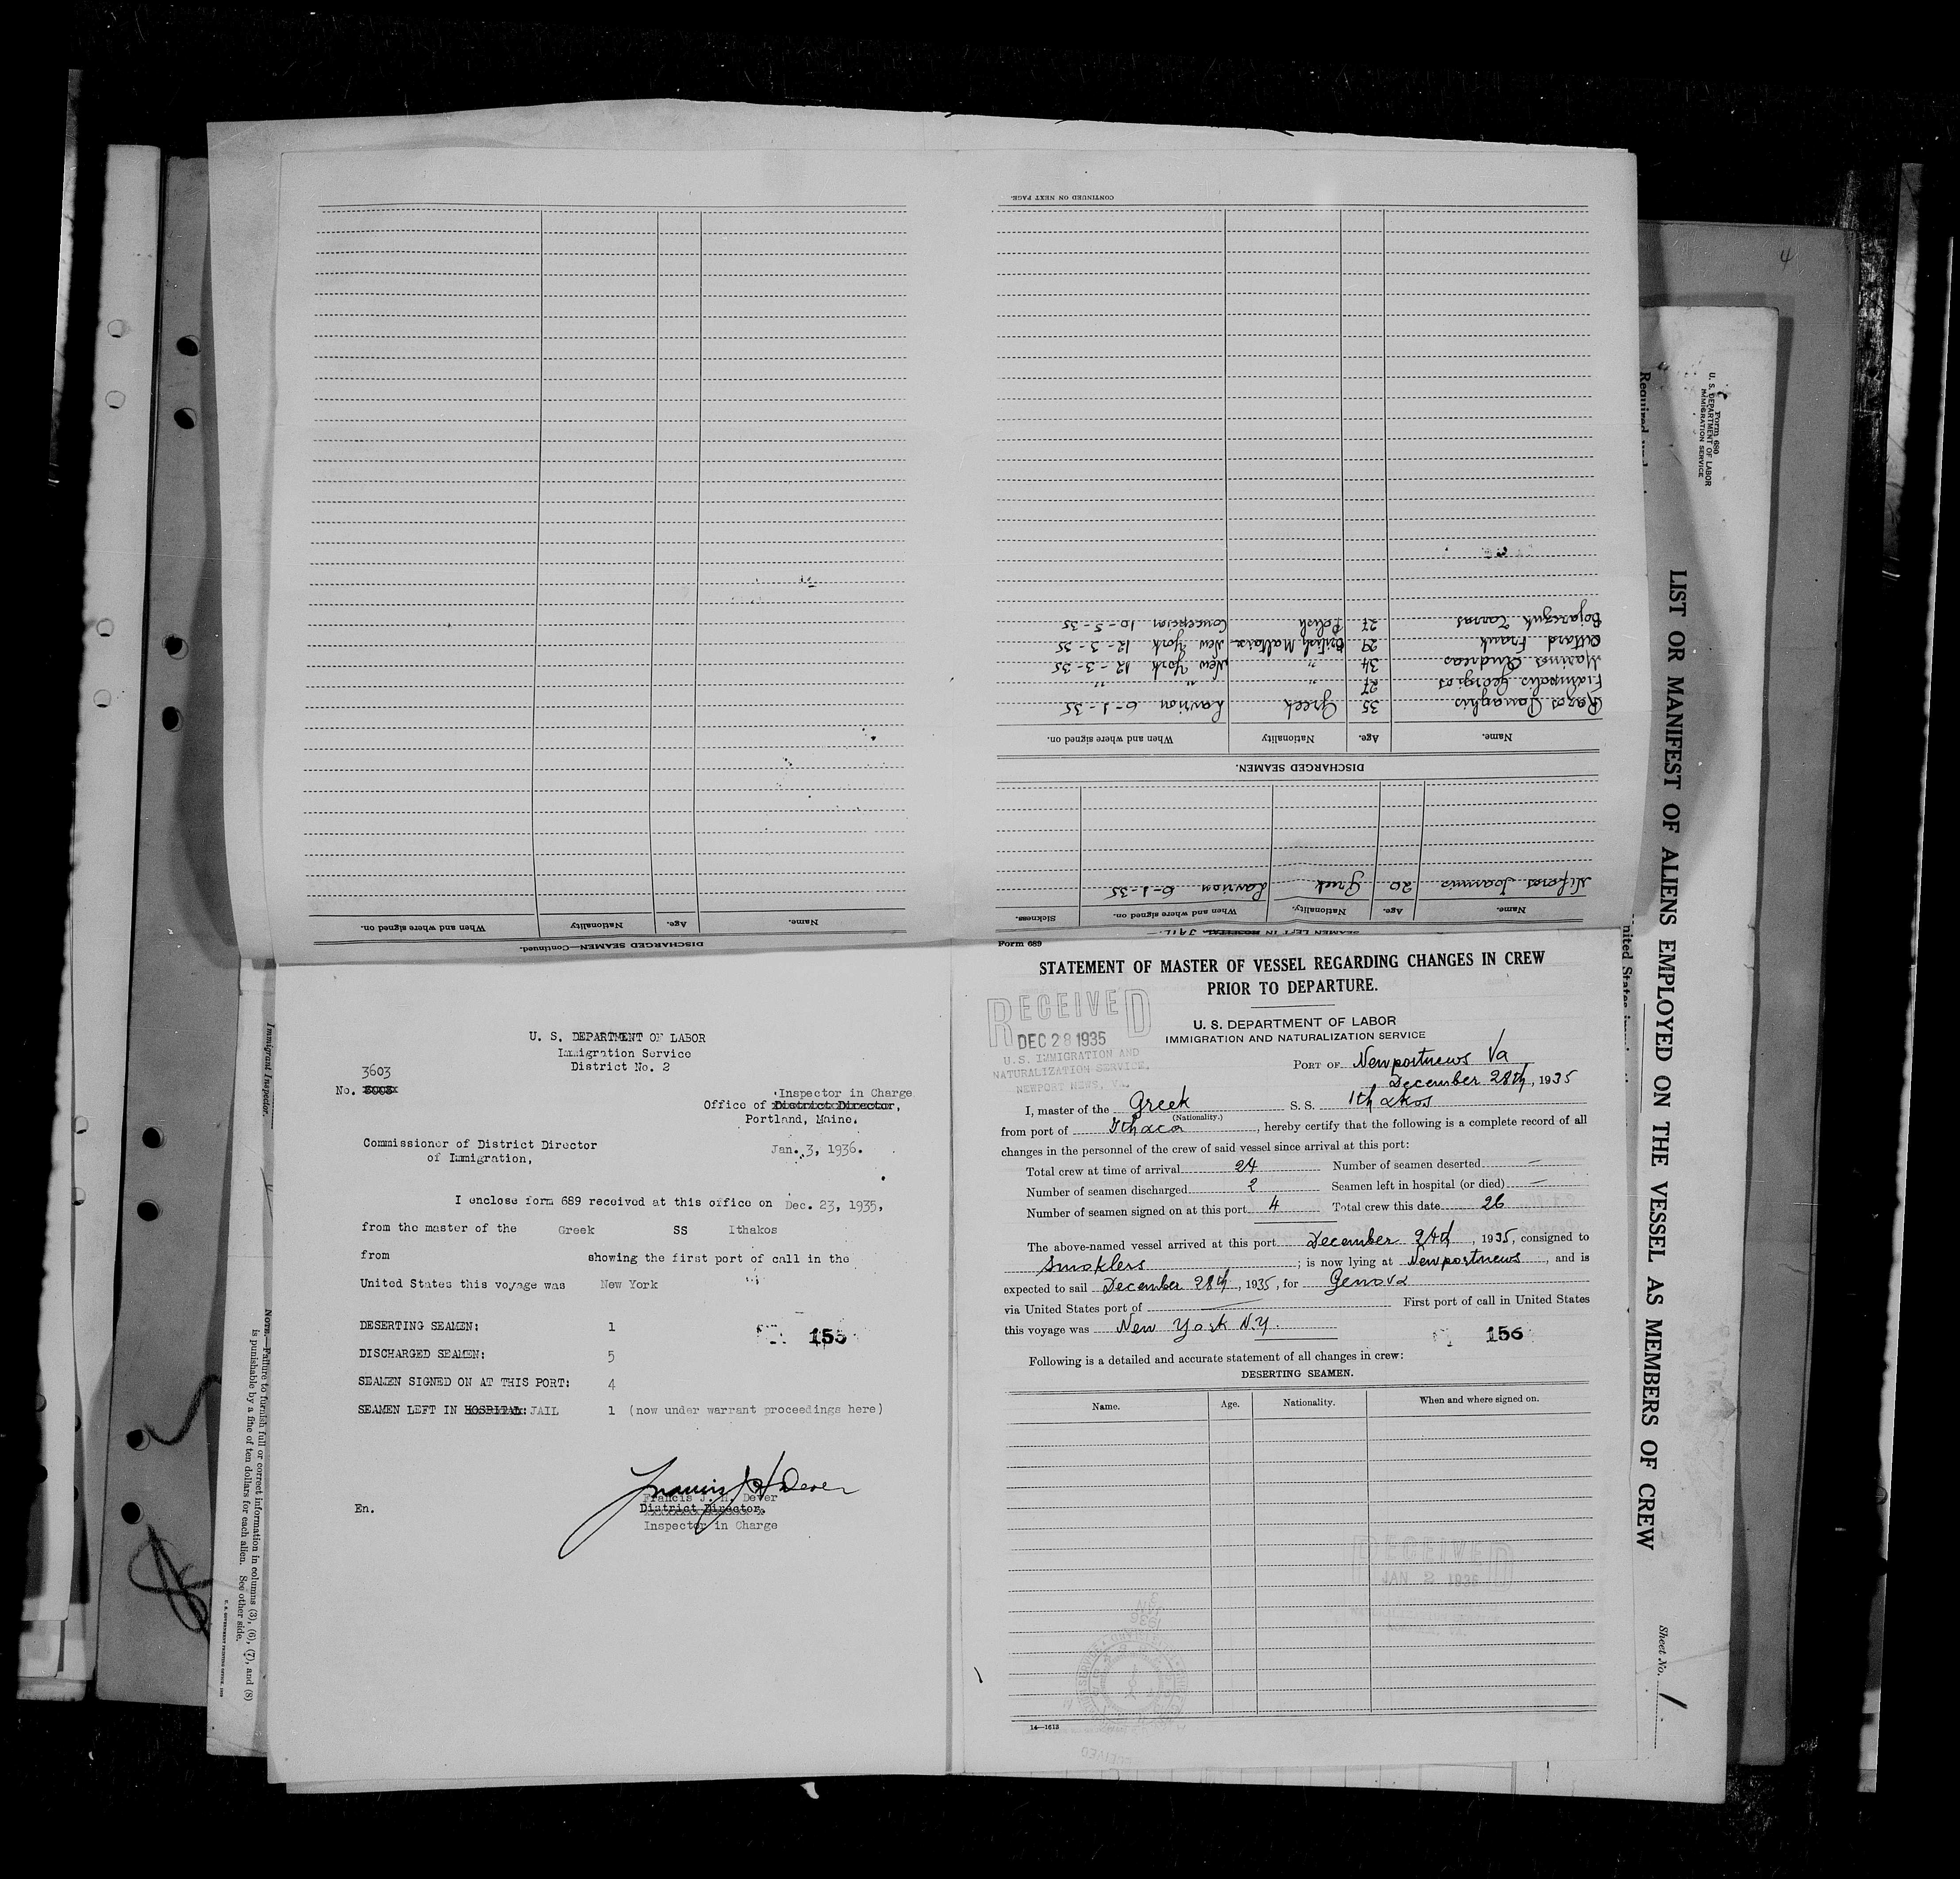 CONTINUED ON NEXT PAGE.
Bojarczuk Tarras 27 Polish Concepcion 10-5-35
Attard Frank 29 British Maltais New York 12-3-35
Marinos Andreas 34 " New York 12-3-35
Georgios 27 " " "
Razos Panaghis 35 Greek Lavrion 6-1-35
Name. Age. Nationality When and where signed on.
DISCHARGED SEAMEN.
Niforos Ioannis 20 Greek Lavrion 6-1-35
Name. Age. Nationality. When and where signed on. Sickness.
SEAMEN LEFT IN HOSPITAL. JAIL.
Name. Age. Nationality When and where signed on.
DISCHARGED SEAMEN—Continued.
U. S. DEPARTMENT OF LABOR
Immigration Service
District No. 2
3603
No.
Inspector in Charge
Office of District Director,
Portland, Maine.
Commissioner of District Director
of Immigration,
Jan. 3, 1936.
I enclose form 689 received at this office on Dec. 23, 1935,
from the master of the Greek SS Ithakos
from showing the first port of call in the
United States this voyage was New York
DESERTING SEAMEN: 1
155
DISCHARGED SEAMEN: 5
SEAMEN SIGNED ON AT THIS PORT: 4
SEAMEN LEFT IN HOSPITAL: JAIL 1 (now under warrant proceedings here)
Francis J. H. Dever
Francis J. H. Dever
District Director.
Inspector in Charge
En.
Form 689
STATEMENT OF MASTER OF VESSEL REGARDING CHANGES IN CREW
PRIOR TO DEPARTURE.
RECEIVED
DEC 28 1935
U.S. IMMIGRATION AND
NATURALIZATION SERVICE,
NEWPORT NEWS, VA.
U. S. DEPARTMENT OF LABOR
IMMIGRATION AND NATURALIZATION SERVICE
PORT OF Newportnews Va
December 28th, 1935
I, master of the Greek S. S. Ithakos
(Nationality.)
from port of Ithaca, hereby certify that the following is a complete record of all
changes in the personnel of the crew of said vessel since arrival at this port:
Total crew at time of arrival 24 Number of seamen deserted —
Number of seamen discharged 2 Seamen left in hospital (or died) —
Number of seamen signed on at this port 4 Total crew this date 26
The above-named vessel arrived at this port December 24th, 1935, consigned to
Smoklers; is now lying at Newportnews, and is
expected to sail December 28th, 1935, for Genova
via United States port of — First port of call in United States
this voyage was New York N.Y.
156
Following is a detailed and accurate statement of all changes in crew:
DESERTING SEAMEN.
Name. Age. Nationality. When and where signed on.
RECEIVED
JAN 2 1936
1936
RECEIVED
14—1613
4
Form 680
U. S. DEPARTMENT OF LABOR
IMMIGRATION SERVICE
LIST OR MANIFEST OF ALIENS EMPLOYED ON THE VESSEL AS MEMBERS OF CREW
Sheet No. 1
Immigrant Inspector.
NOTE.—Failure to furnish full or correct information in columns (3), (6), (7), and (8)
is punishable by a fine of ten dollars for each alien. See other side.